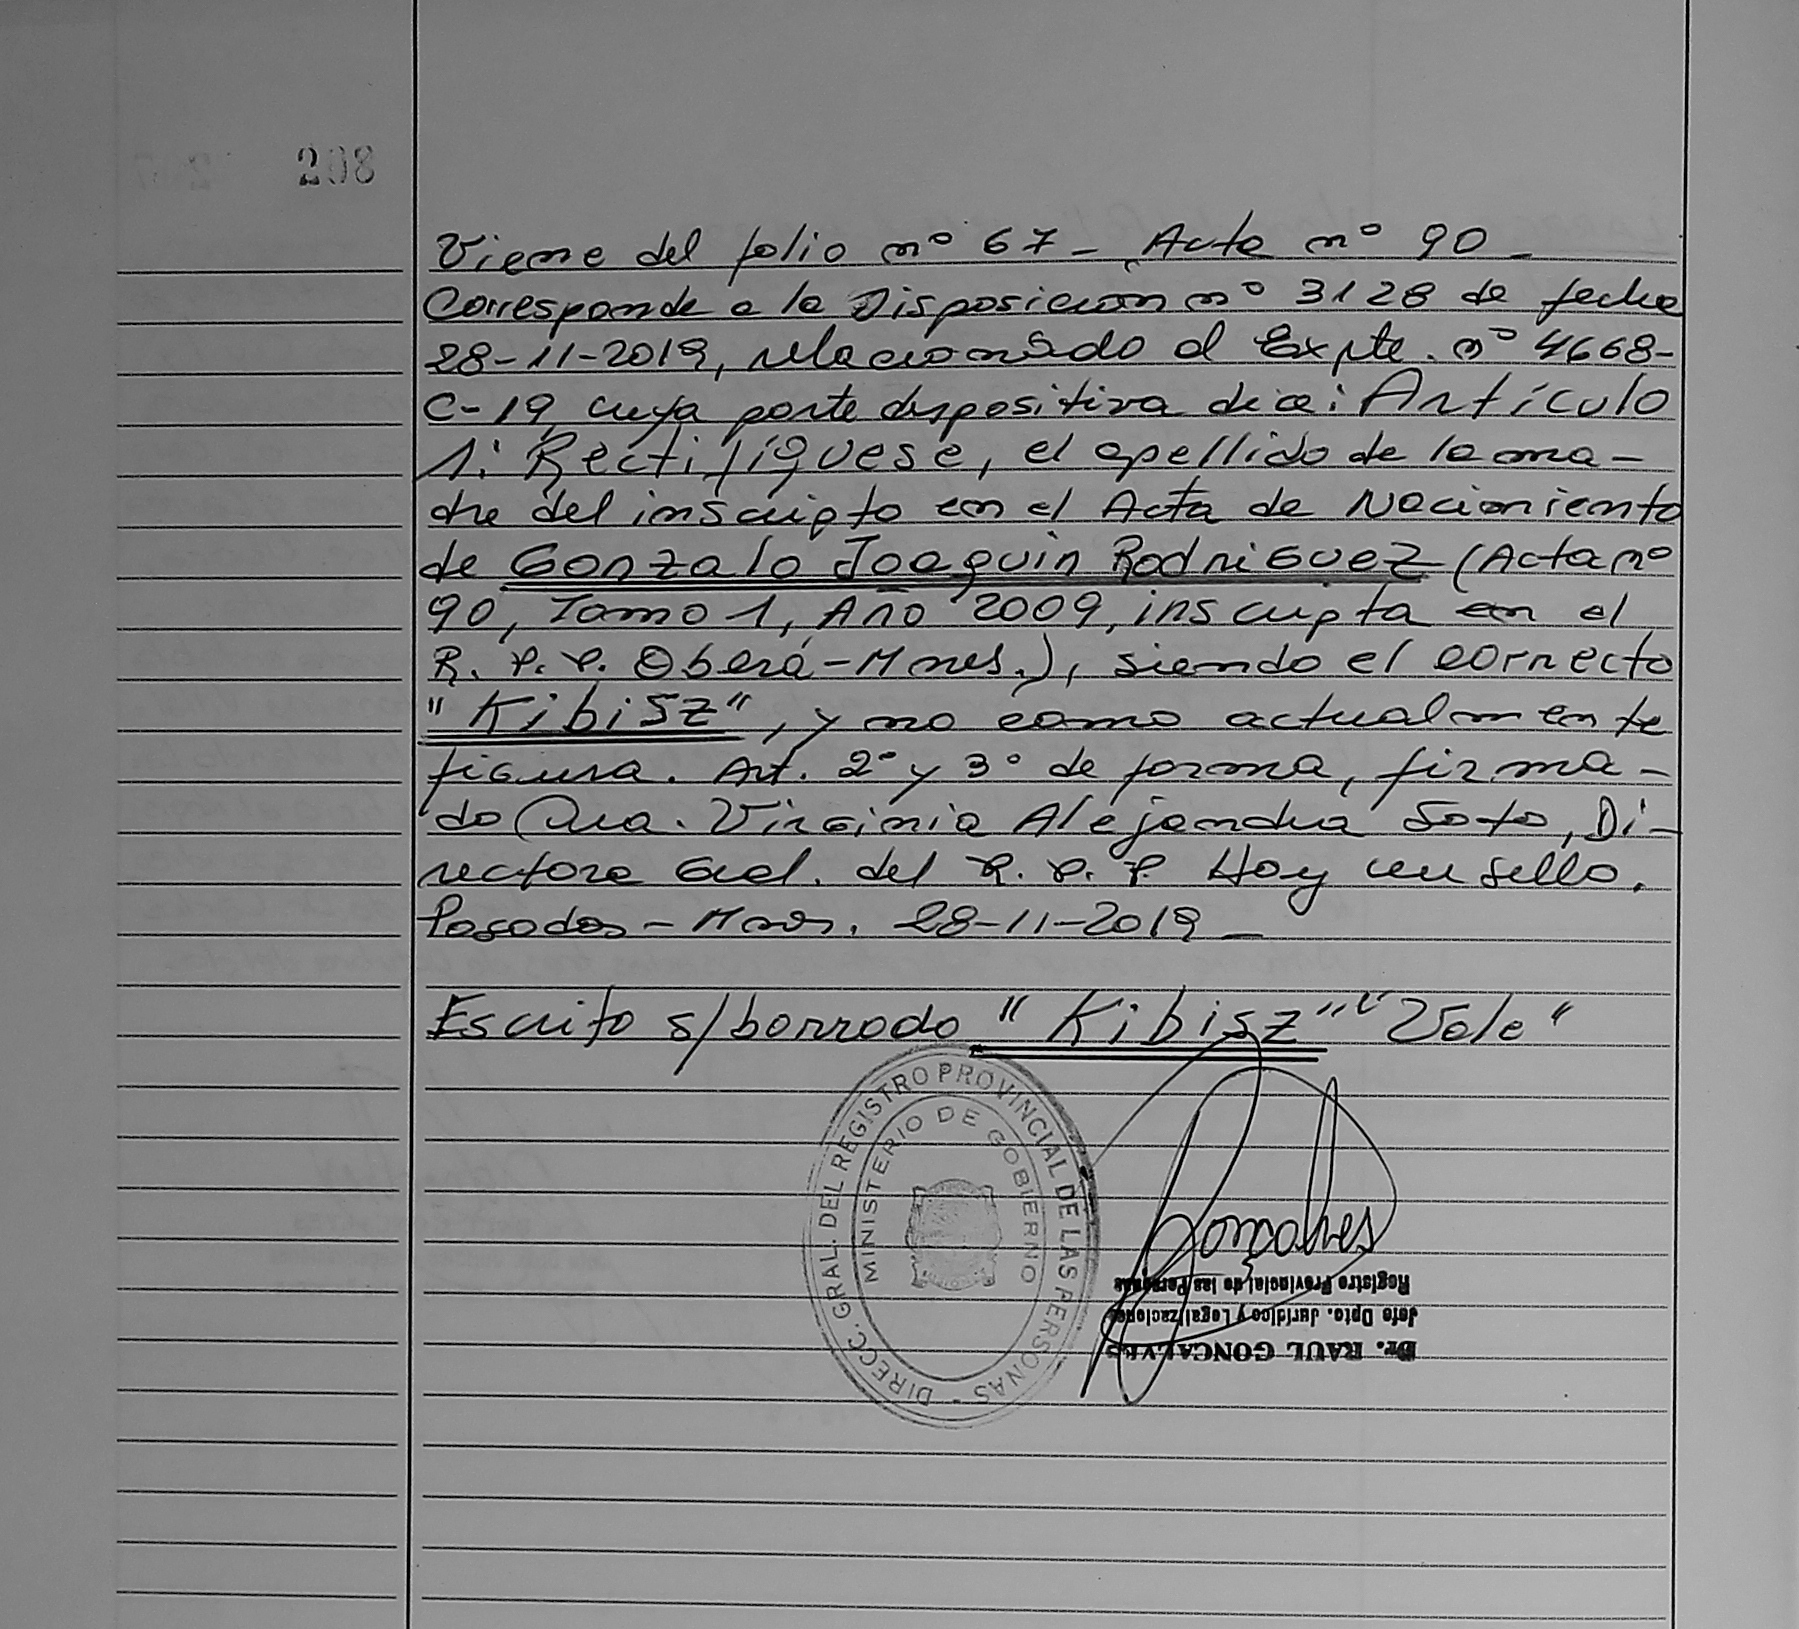 208
Viene del folio nº 67 - Acta nº 90 -
Corresponde a la Disposición nº 3128 de fecha
28-11-2019, relacionado al Expte. nº 4668-
C-19, cuya parte dispositiva dice: Artículo
1: Rectifíquese, el apellido de la ma-
dre del inscripto en el Acta de Nacimiento
de Gonzalo Joaquin Rodriguez (Acta nº
90, Tomo 1, Año 2009, inscripta en el
R. P. P. Oberá-Mnes.), siendo el correcto
"Kibisz", y no como actualmente
figura. Art. 2º y 3º de forma, firma-
do Dra. Virginia Alejandra Soto, Di-
rectora Gral. del R. P. P Hay un sello.
Posadas - Mnes. 28-11-2019 -
Escrito s/borrado "Kibisz" "Vale"
DIRECC. GRAL. DEL REGISTRO PROVINCIAL DE LAS PERSONAS -
MINISTERIO DE GOBIERNO
Goncalves
Dr. RAUL GONCALVES
Jefe Dpto. Jurídico y Legalizaciones
Registro Provincial de las Personas